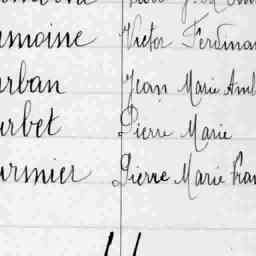 umoine Victor Ferdinan
urban Jean Marie Amb
urbet Pierre Marie
urmier Pierre Marie Fran